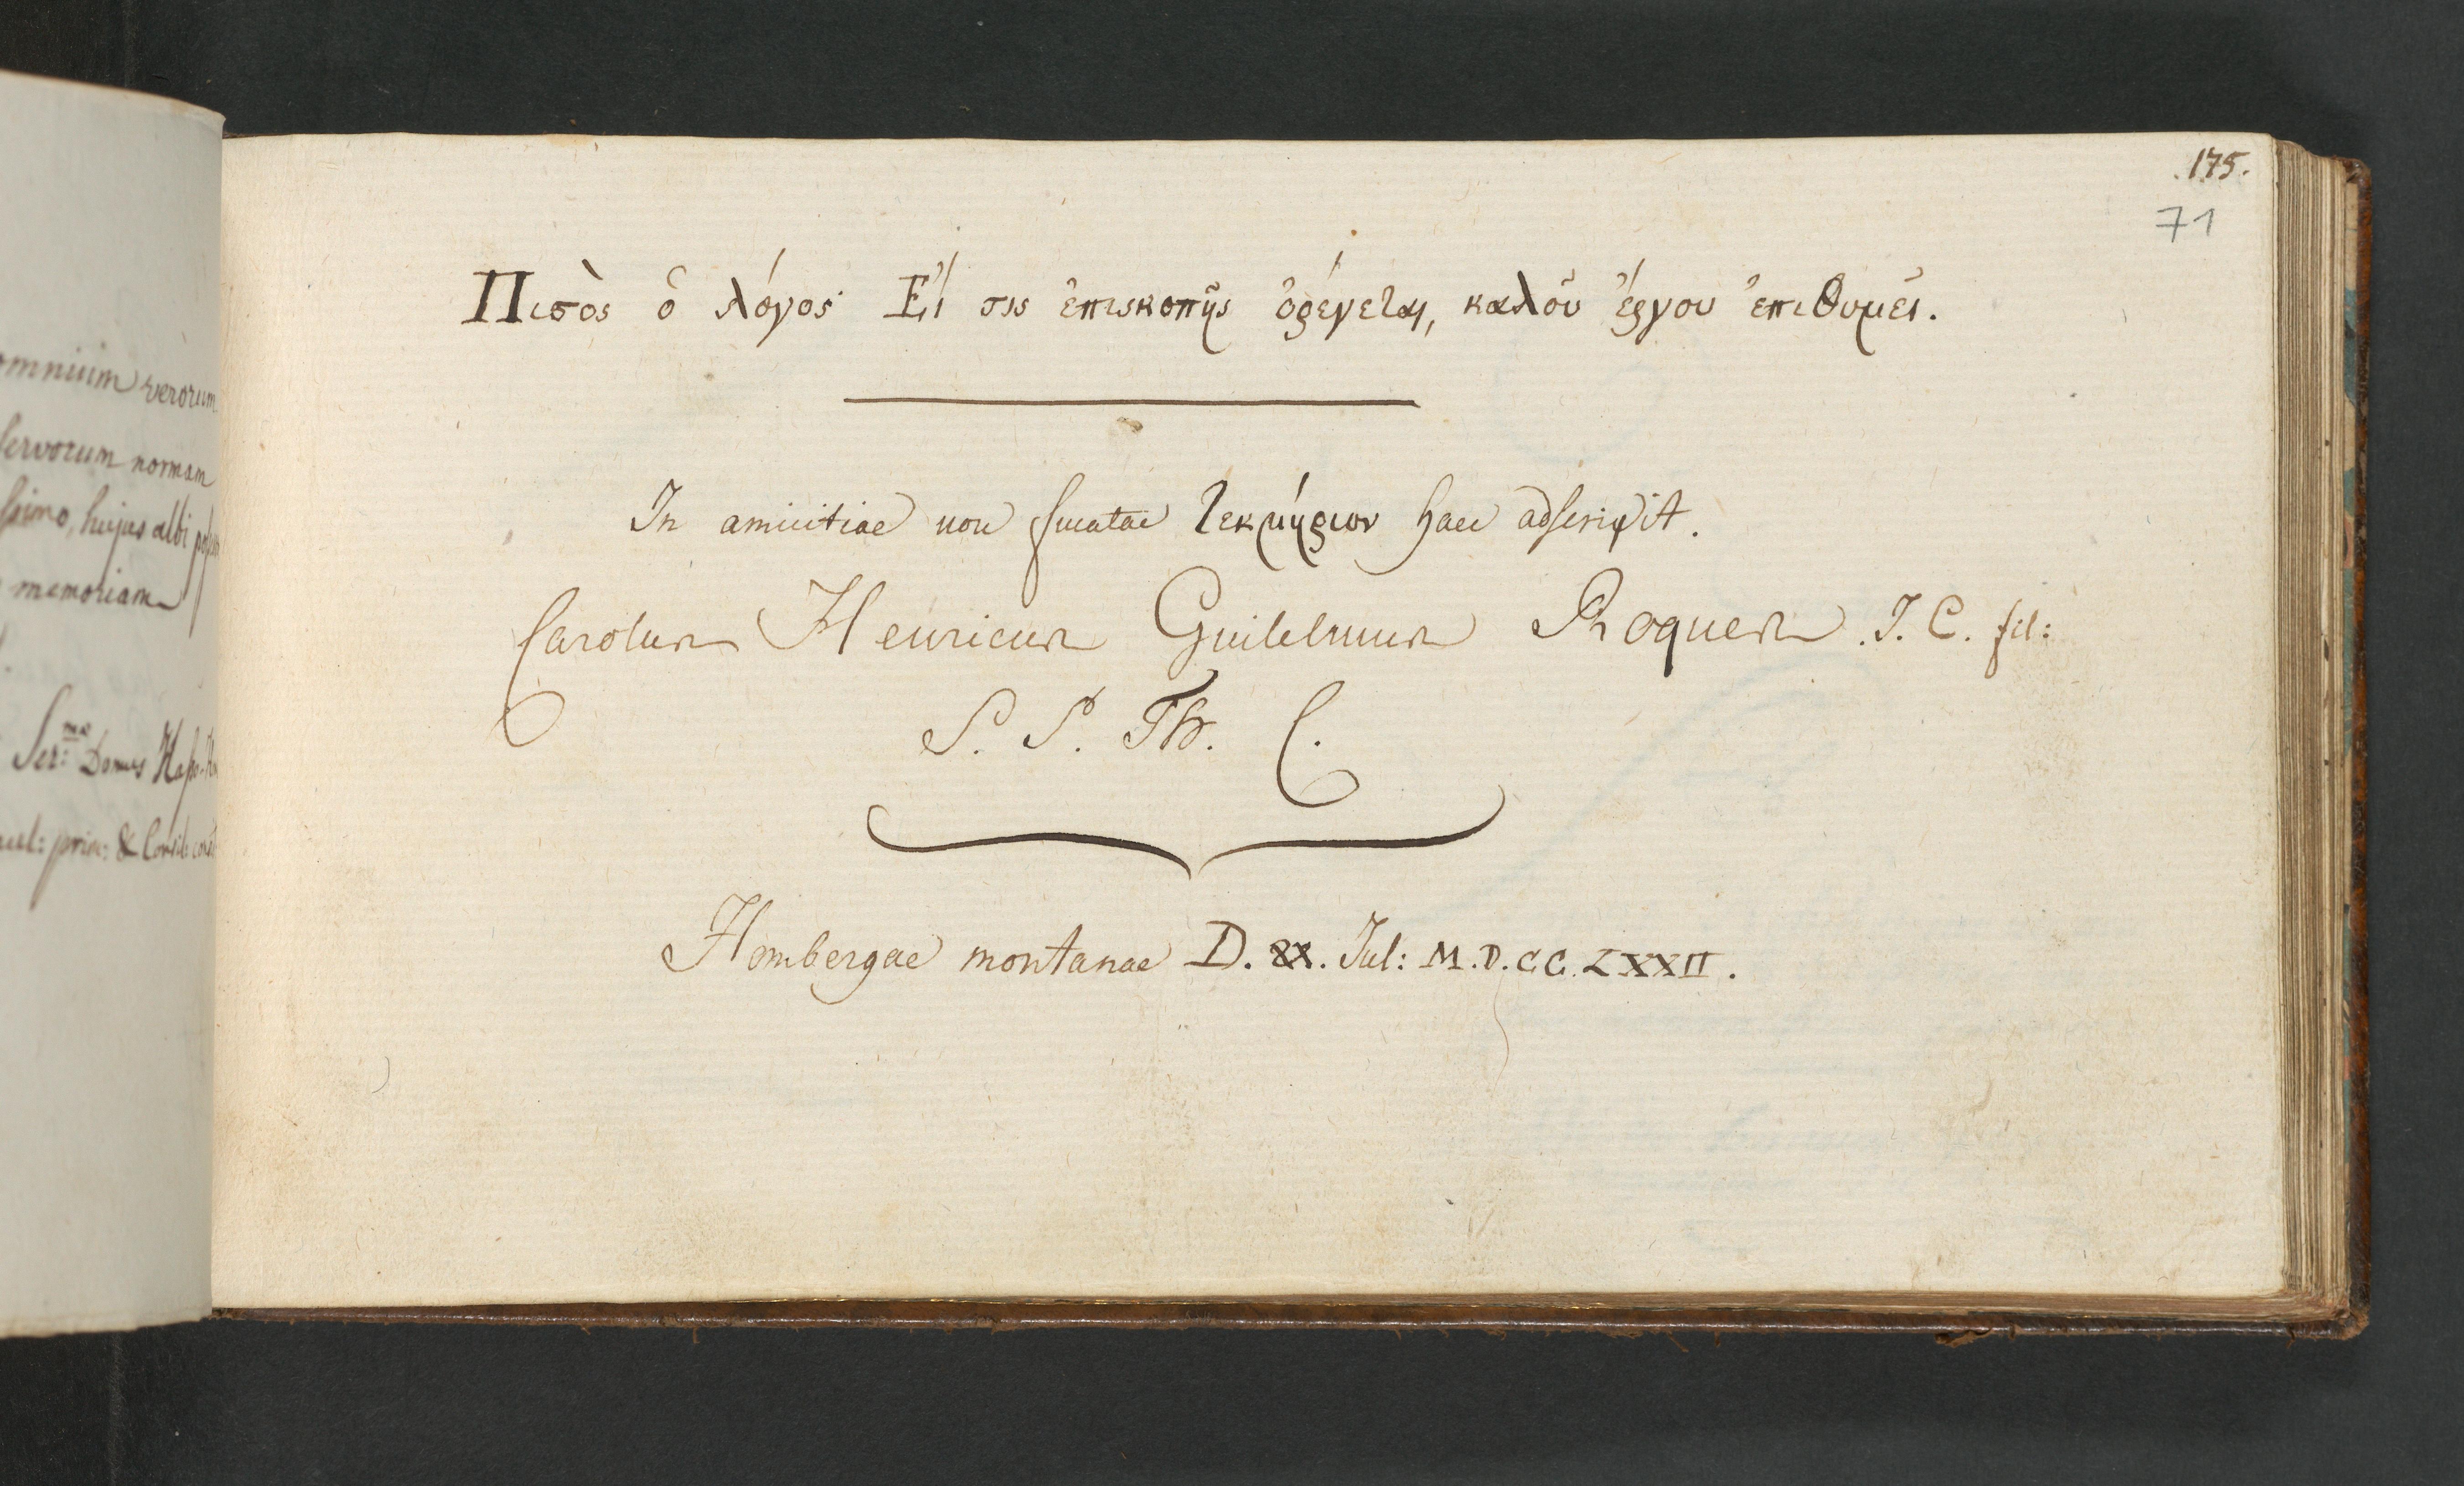 omnium verorum
servorum normam
ssimo, hujus albi
memoriam
Ser:me Domus
175.
71
Πιϛὸς ὁ λόγος· Εἴ τις ἐπισκοπῆς ὀρέγεται, καλοῦ ἔργου ἐπιθυμεῖ.
In amicitiae non fucatae τεκμήριον haec adscripsit.
Carolus Henricus Guilelmus Roques. I. C. fil:
S. S. Th. C.
Hombergae montanae D. XX. Jul: M.D.CC.LXXII.